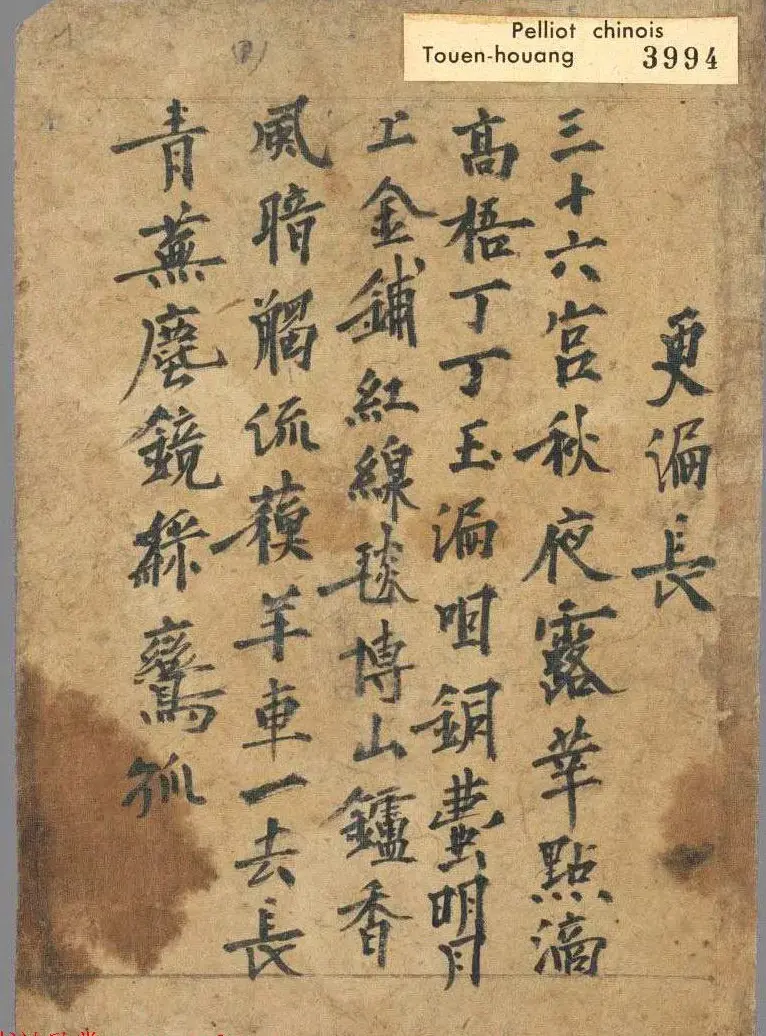 Pelliot chinois
Touen-houang 3994
更漏長
三十六宮秋夜露華點滴
高梧丁丁玉漏咽銅壺明月
上金鋪紅線毯博山鑪香
風暗觸流蘇羊車一去長
青蕪塵鏡綵鸞孤